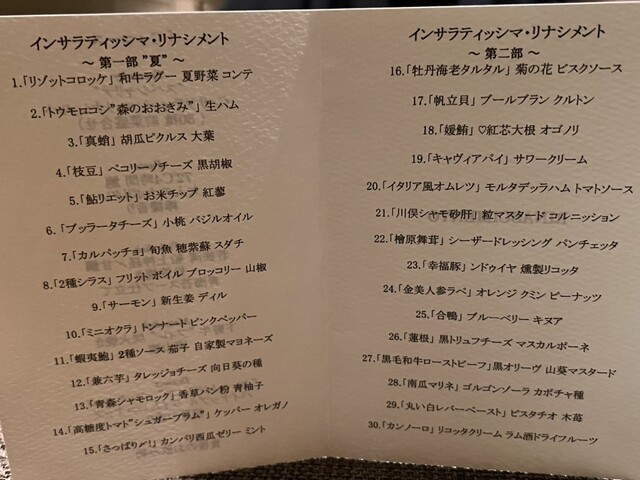 インサラティッシマ・リナシメント
～ 第一部 ”夏” ～
1.「リゾットコロッケ」 和牛ラグー 夏野菜 コンテ
2.「トウモロコシ”森のおおきみ”」 生ハム
3.「真蛸」 胡瓜ピクルス 大葉
4.「枝豆」 ペコリーノチーズ 黒胡椒
5.「鮎リエット」 お米チップ 紅蓼
6.「ブッラータチーズ」 小桃 バジルオイル
7.「カルパッチョ」 旬魚 穂紫蘇 スダチ
8.「2種シラス」 フリット ボイル ブロッコリー 山椒
9.「サーモン」 新生姜 ディル
10.「ミニオクラ」 トンナート ピンクペッパー
11.「蝦夷鮑」 2種ソース 茄子 自家製マヨネーズ
12.「兼六芋」 タレッジョチーズ 向日葵の種
13.「青森シャモロック」 香草パン粉 青柚子
14.「高糖度トマト”シュガープラム”」 ケッパー オレガノ
15.「さっぱり〆!」 カンパリ西瓜ゼリー ミント
インサラティッシマ・リナシメント
～ 第二部 ～
16.「牡丹海老タルタル」 菊の花 ビスクソース
17.「帆立貝」 ブールブラン クルトン
18.「媛鮪」 ♡紅芯大根 オゴノリ
19.「キャヴィアパイ」 サワークリーム
20.「イタリア風オムレツ」 モルタデッラハム トマトソース
21.「川俣シャモ砂肝」 粒マスタード コルニッション
22.「檜原舞茸」 シーザードレッシング パンチェッタ
23.「幸福豚」 ンドゥイヤ 燻製リコッタ
24.「金美人参ラペ」 オレンジ クミン ピーナッツ
25.「合鴨」 ブルーベリー キヌア
26.「蓮根」 黒トリュフチーズ マスカルポーネ
27.「黒毛和牛ローストビーフ」 黒オリーヴ 山葵マスタード
28.「南瓜マリネ」 ゴルゴンゾーラ カボチャ種
29.「丸い白レバーペースト」 ピスタチオ 木苺
30.「カンノーロ」 リコッタクリーム ラム酒ドライフルーツ